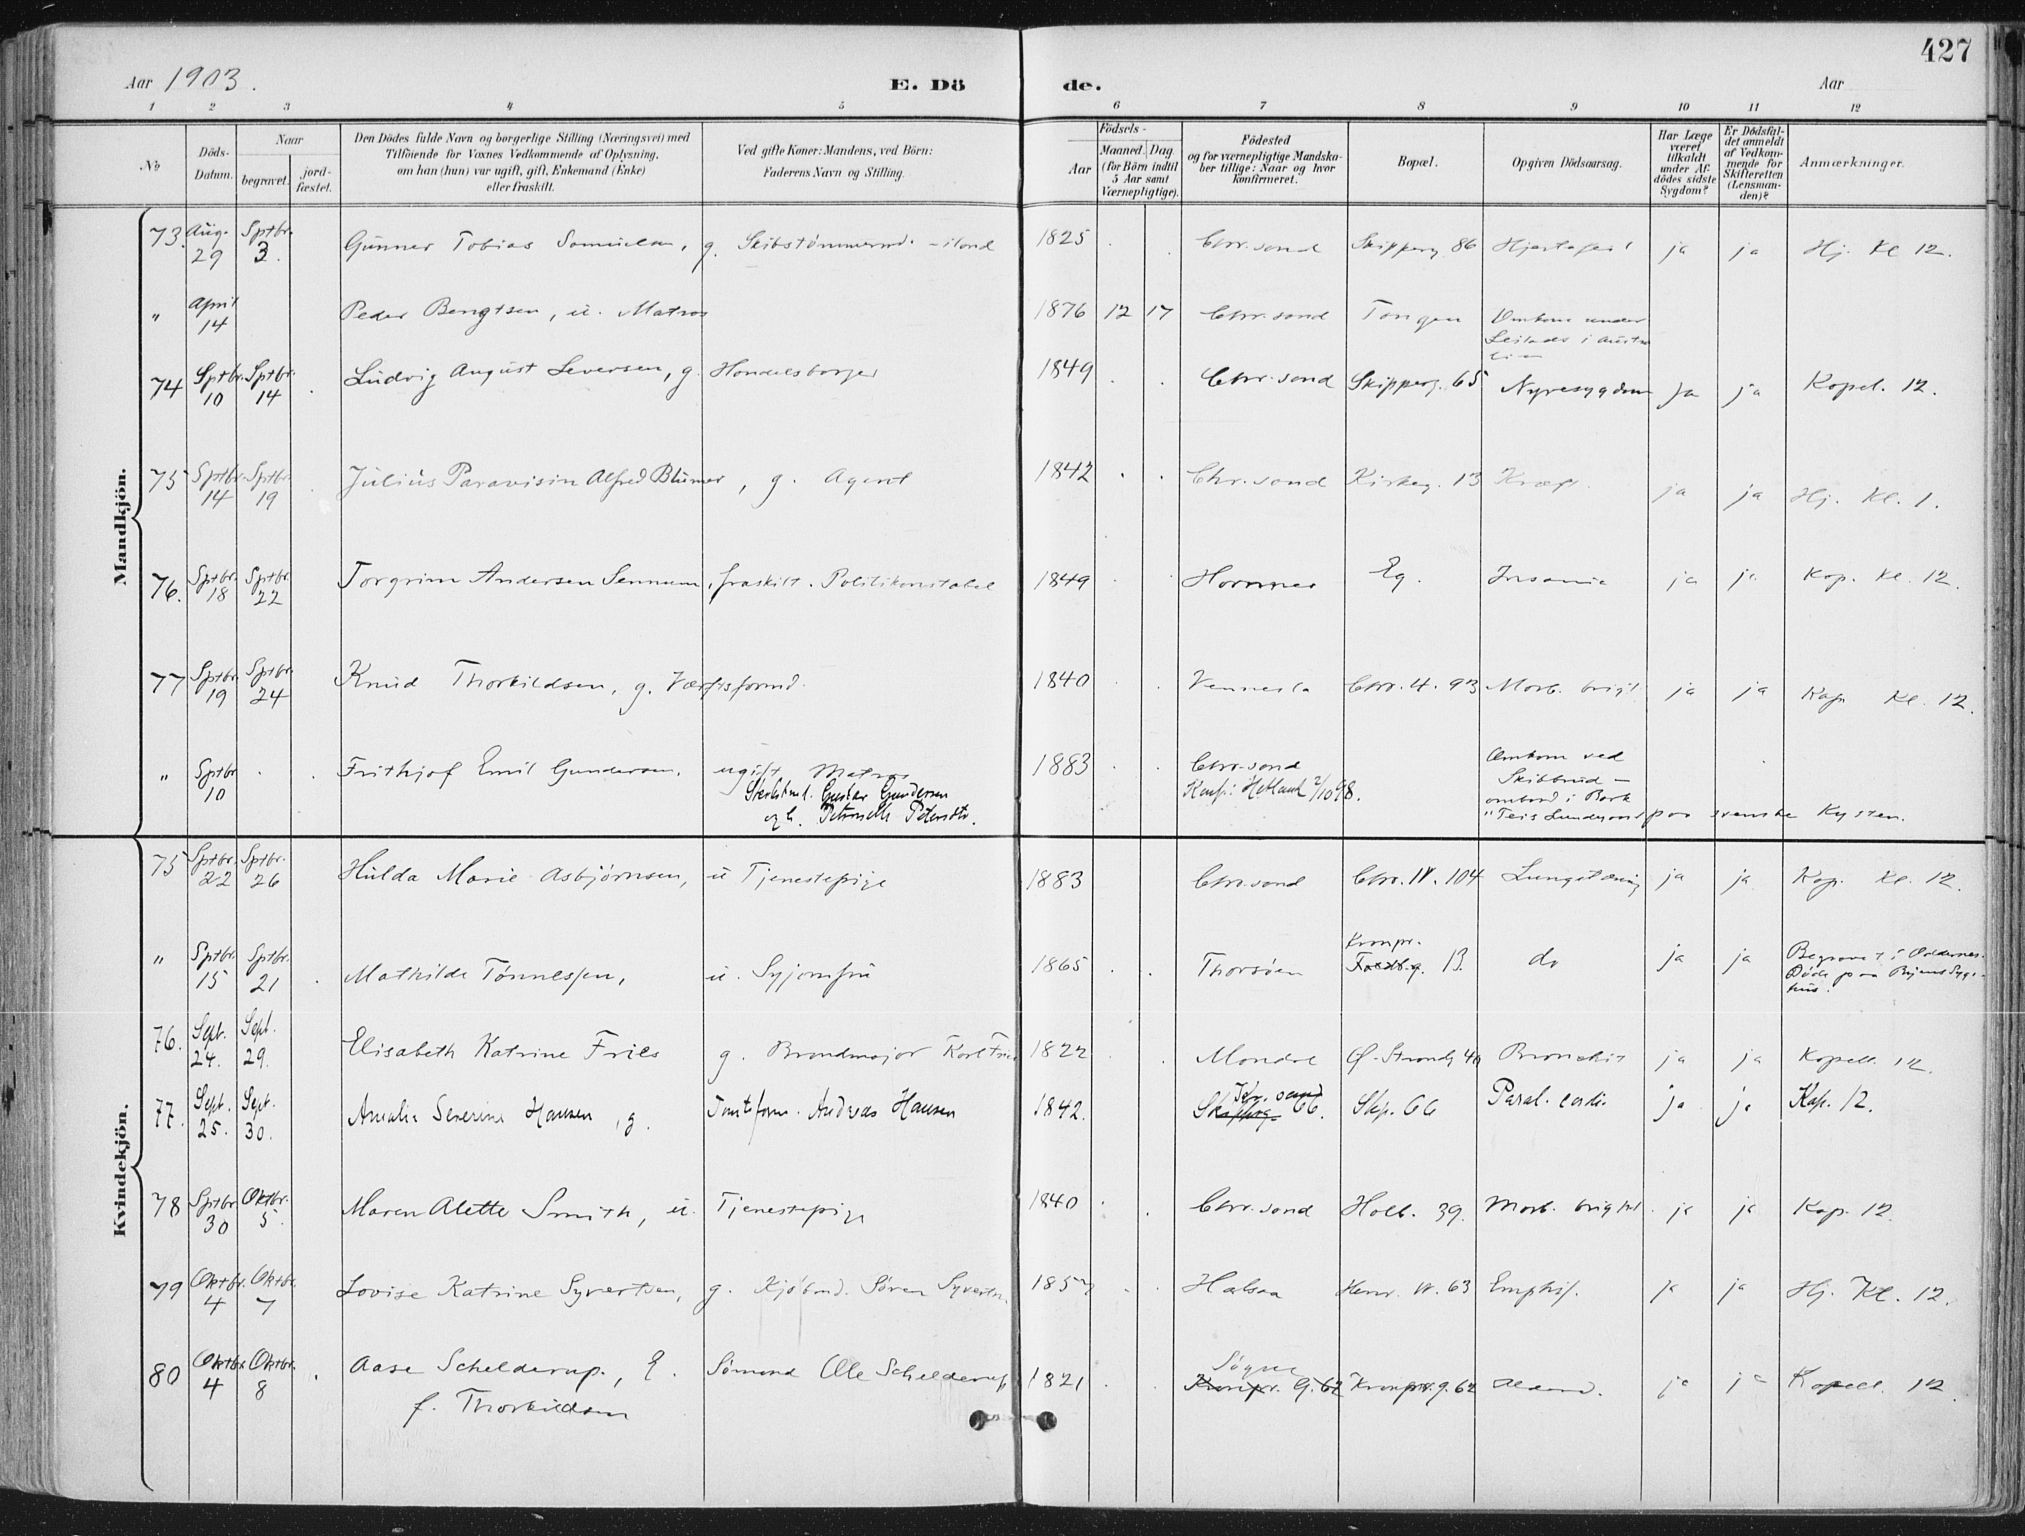 427
Aar 1903.
E. Dö de.
Aar
1 2 3 4 5 6 7 8 9 10 11 12
No
Döds-Datum.
Naar
begravet.
jord-fæstet.
Den Dödes fulde Navn og borgerlige Stilling (Næringsvei) med
Tilföiende for Voxnes Vedkommende af Oplysning,
om han (hun) var ugift, gift, Enkemand (Enke)
eller fraskilt.
Ved gifte Koner: Mandens, ved Börn:
Faderens Navn og Stilling.
Födsels-
Aar
Maaned. Dag
(for Börn indtil
5 Aar samt
Værnepligtige).
Födested
og for værnepligtige Mandska-
ber tillige: Naar og hvor
konfirmeret.
Bopæl.
Opgiven Dödsaarsag.
Har Læge
været
tilkaldt
under Af-
dödes sidste
Sygdom?
Er Dödsfal-
det anmeldt
af Vedkom-
mende for
Skifteretten
(Lensman-
den)?
Anmærkninger.
Mandkjön.
73. Aug. 29 Sptbr. 3. Gunner Tobias Samuelsen, g. Skibstømmermd. 1825 Chr.sand Skipperg. 86 Hjertefeil ja ja Hj. Kl 12.
" April 14 Peder Bengtsen, u. Matros 1876 12 17 Chr.sand Tangen Omkom under
Seilads i Austra
lien
74 Sptbr. 10 Sptbr. 14 Ludvig August Seversen, g. Handelsborger 1849 Chr.sand Skipperg. 65 Nyresygdom Ja ja Kapel. 12.
75 Sptbr. 14 Sptbr. 19 Julius Paravisin Alfred Blumer, g. Agent 1842 Chr.sand Kirkeg. 13 Kræft. ja ja Hj. Kl. 1.
76. Sptbr. 18 Sptbr. 22 Torgrim Andersen Sennum, fraskilt. Politikonstabel 1849 Hornnes Eg. Insania ja ja Kap. Kl. 12.
77 Sptbr. 19 Sptbr. 24 Knud Thorkildsen, g. Værftsformd. 1840 Vennesla Chr. 4. 93 Morb. brigt ja ja Kap Kl. 12.
" Sptbr 10 Frithjof Emil Gundersen, ugift Matros 1883 Chr.sand Omkom ved
Gustav Gundersen Konf: Hetland 2/10 98. Skibbrud -
og h. Petronelle Petersdtr. ombord i Bark
"Teis Lundegaard paa svenske Kysten.
Kvindekjön.
75 Sptbr. 22 Sptbr. 26 Hulda Marie Asbjørnsen, u Tjenestepige 1883 Chr.sand Chr. IV. 104 Lungetæring ja ja Kap. Kl. 12.
" Sptbr. 15 Sptbr. 21 Mathilde Tønnessen, u. Syjomfru 1865 Thorsøen Kronpr. 13. do ja ja Begravet i Oddernes.
Døde paa Byens Syge-
hus.
76. Sept. 24. Sept. 29. Elisabeth Katrine Fries g. Brandmajor Karl Fries 1822 Mandal Ø. Strandg 40 Bronchit ja ja Kapell. 12.
77. Sept. 25. Sept. 30. Amalie Severine Hansen, g. Tomtform. Andreas Hansen 1842. Kr. sand Skipperg. 66. Skip. 66 Paral. cordis. ja ja Kap. 12.
78 Sptbr 30 Oktbr. 5. Maren Alette Smith, u. Tjenestepige 1840 Chr.sand Holb. 39. Morb. brightii. ja ja Kap. 12.
79 Oktbr. 4 Oktbr. 7 Lovise Katrine Syvertsen, g. Kjøbmd. Søren Syvertsen 1857 Halsaa Henr. W. 63 Emphis. ja ja Hj. Kl. 12.
80 Oktbr. 4 Oktbr. 8 Aase Schelderup, E. Sømand Ole Schelderup 1821 Søgne Kronpr. G. 62 Kronpr. g. 62 Alderd. ja ja Kapell. 12
f. Thorkildsen